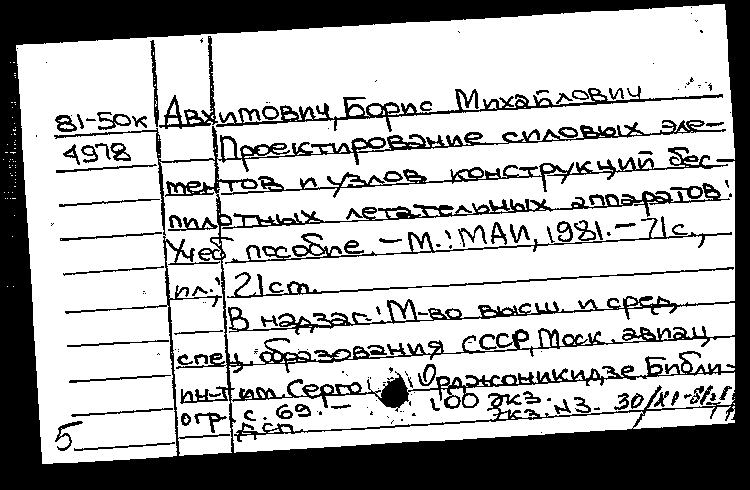 81-50к Авхимович, Борис Михайлович
4978 Проектирование силовых эле-
ментов и узлов конструкций бес-
пилотных летательных аппаратов:
Учеб. пособие. — М.: МАИ, 1981. — 71 с.,
ил.; 21 см.
В надзаг.: М-во высш. и сред.
спец. образования СССР, Моск. авиац.
ин-т им. Серго Орджоникидзе. Библи-
огр.: с. 69. — 100 экз.
5 Дсп. экз. №3. 30/XI-81